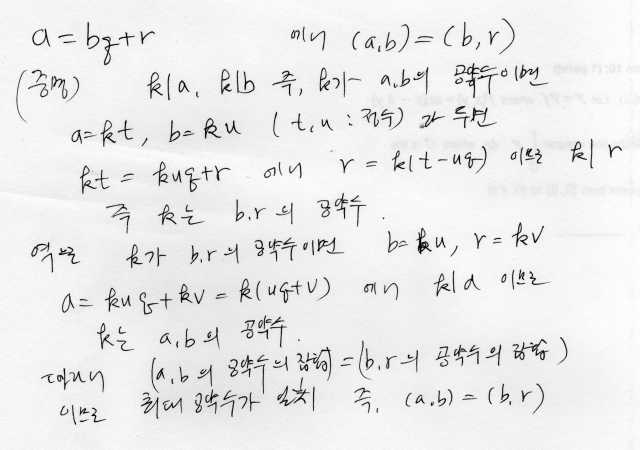 a = bq+r 에서 (a,b) = (b,r)
(증명) k|a, k|b 즉, k가 a,b의 공약수이면
a=kt, b=ku (t,u : 정수)라 두면
kt = kuq+r 에서 r = k(t-uq) 이므로 k|r
즉 k는 b,r의 공약수.
역으로 k가 b,r의 공약수이면 b=ku, r=kv
a = kuq+kv = k(uq+v) 에서 k|a 이므로
k는 a,b의 공약수.
따라서 (a,b의 공약수의 집합) = (b,r의 공약수의 집합)
이므로 최대공약수가 일치 즉, (a,b) = (b,r)